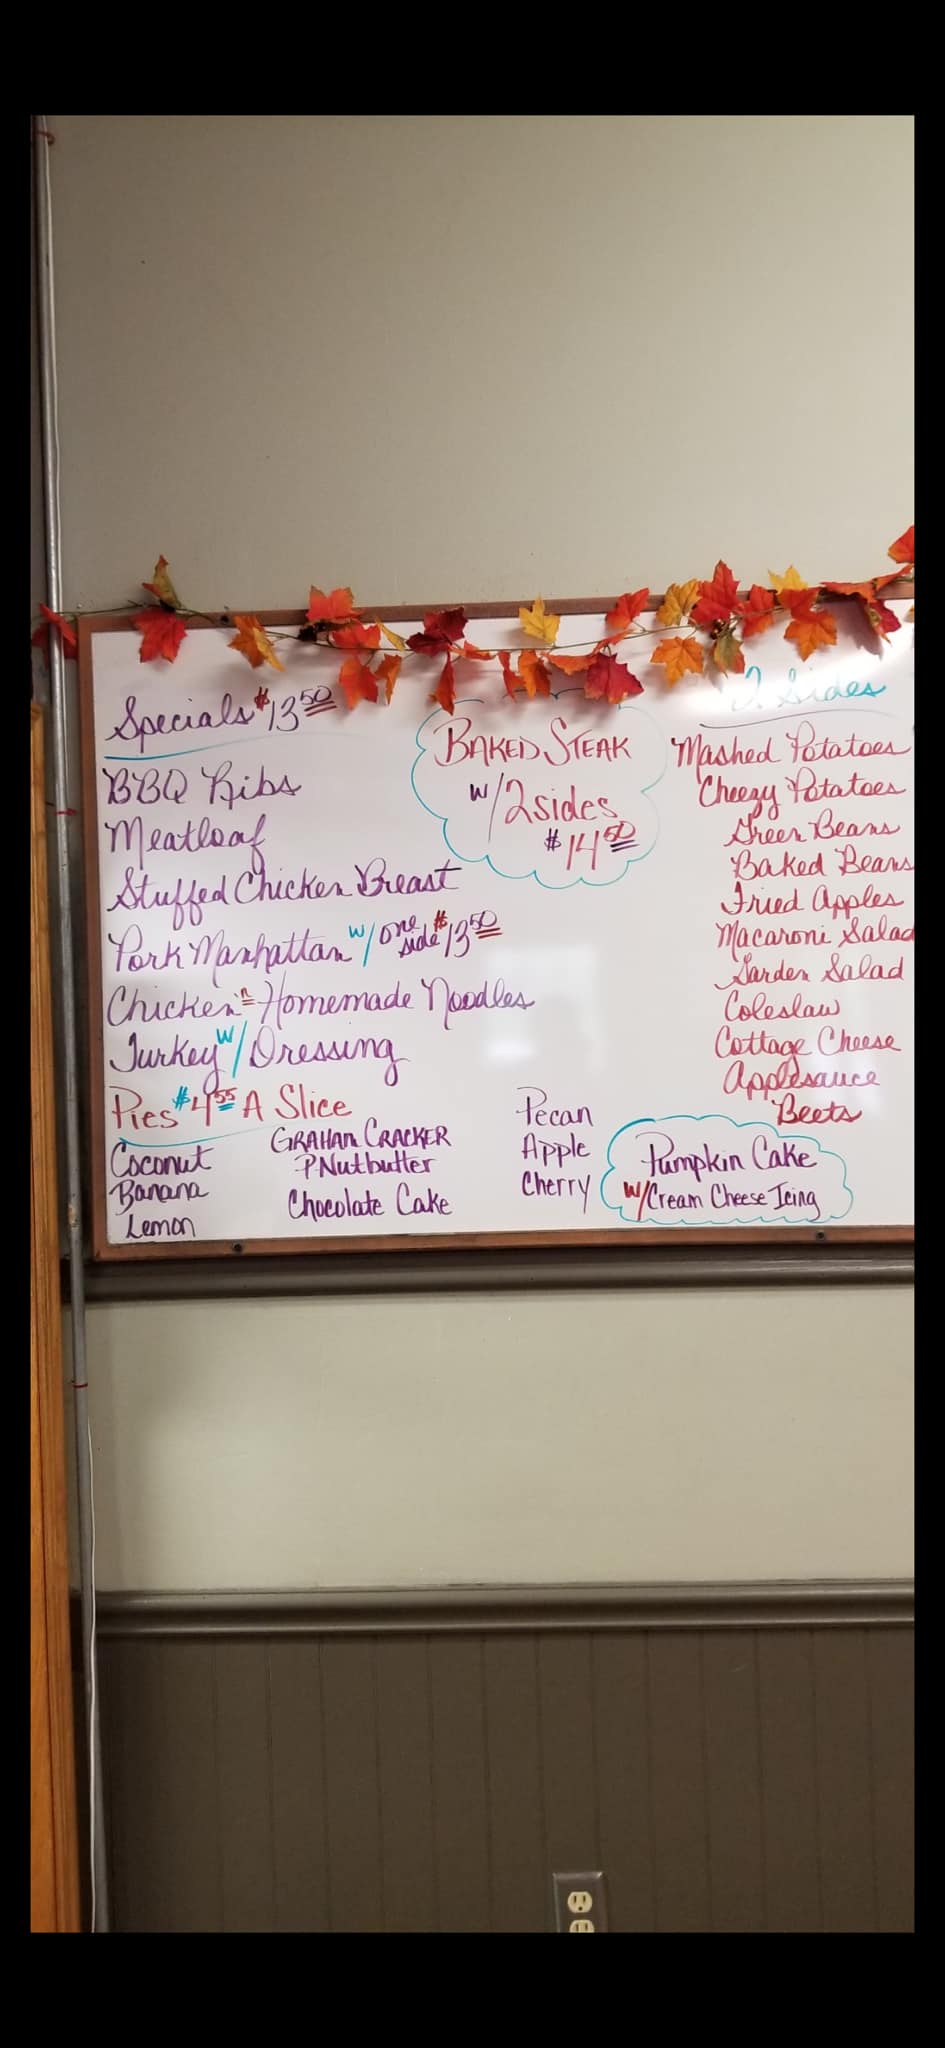 Specials $13.50
BBQ Ribs
Meatloaf
Stuffed Chicken Breast
Pork Manhattan w/ one side $13.50
Chicken n Homemade Noodles
Turkey w/ Dressing
BAKED STEAK
w/ 2 sides
$14.50
2 Sides
Mashed Potatoes
Cheezy Potatoes
Green Beans
Baked Beans
Fried Apples
Macaroni Salad
Garden Salad
Coleslaw
Cottage Cheese
Applesauce
Beets
Pies $4.55 A Slice
Coconut
Banana
Lemon
GRAHAM CRACKER
PNutbutter
Chocolate Cake
Pecan
Apple
Cherry
Pumpkin Cake
w/ Cream Cheese Icing